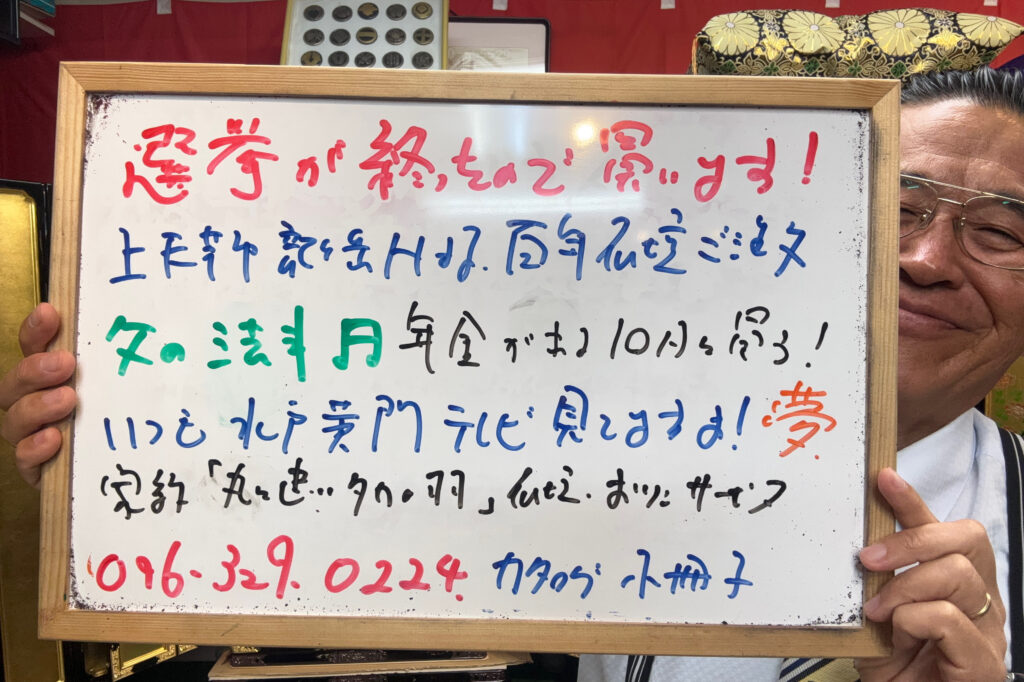 選挙が終ったので買います!
上天草市龍ヶ岳Hさま.百年仏壇ご注文
父の法事月 年金が出る10月に買う!
いつも水戸黄門テレビ見てますよ! 夢
家紋「丸に違い鷹の羽」仏壇.おりんサービス
096-329.0224. カタログ 小冊子